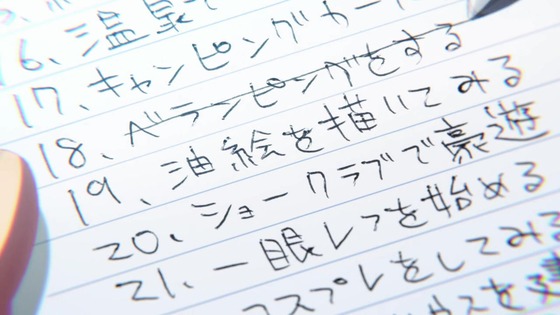 16、温泉
17、キャンピングカー
18、ベランピングをする
19、油絵を描いてみる
20、ショークラブで豪遊
21、一眼レフを始める
コスプレをしてみる
ウスを